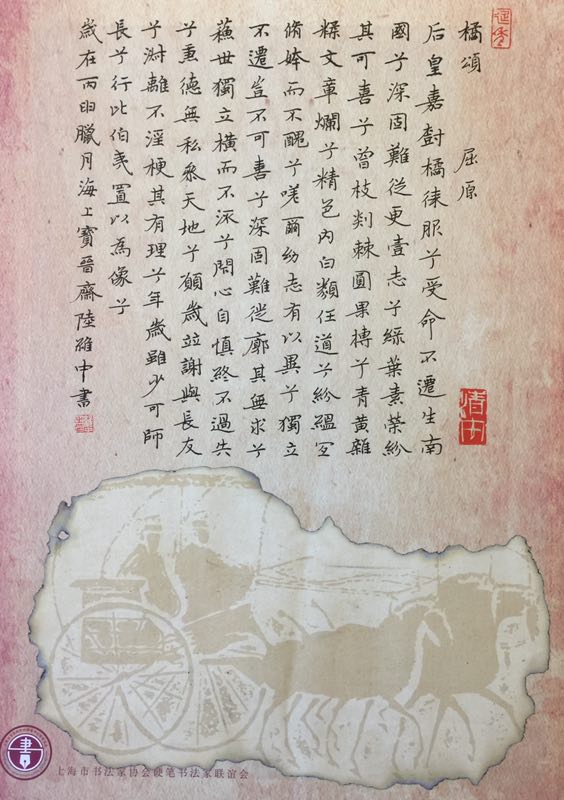 橘頌 屈原
后皇嘉樹橘徠服兮受命不遷生南
國兮深固難徙更壹志兮綠葉素榮紛
其可喜兮曾枝剡棘圓果摶兮青黃雜
糅文章爛兮精色內白類任道兮紛緼宜
脩姱而不醜兮嗟爾幼志有以異兮獨立
不遷豈不可喜兮深固難徙廓其無求兮
蘇世獨立橫而不流兮閉心自慎終不過失
兮秉德無私參天地兮願歲並謝與長友
兮淑離不淫梗其有理兮年歲雖少可師
長兮行比伯夷置以為像兮
歲在丙申臘月海上寶晉齋陸中書
上海市书法家协会硬笔书法家联谊会